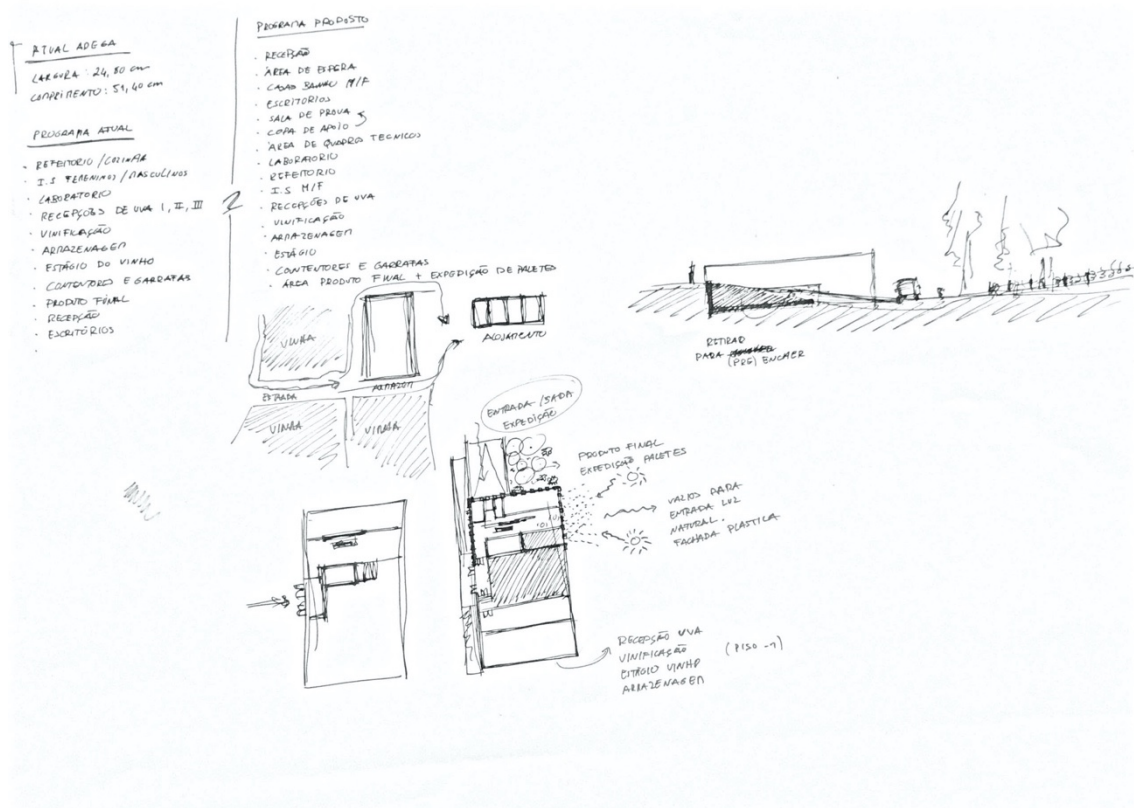 ATUAL ADEGA
LARGURA: 24,80 cm
COMPRIMENTO: 51,40 cm
PROGRAMA ATUAL
- REFEITORIO / COZINHA
· I.S FEMENINOS / MASCULINOS
· LABORATORIO
· RECEPÇÕES DE UVA I, II, III
· VINIFICAÇÃO
· ARMAZENAGEM
· ESTÁGIO DO VINHO
· CONTENTORES E GARRAFAS
· PRODUTO FINAL
· RECEPÇÃO
· ESCRITÓRIOS
PROGRAMA PROPOSTO
· RECEPÇÃO
· ÁREA DE ESPERA
· CASAS BANHO M/F
· ESCRITORIOS
· SALA DE PROVA
· COPA DE APOIO
· ÁREA DE QUADROS TECNICOS
· LABORATORIO
· REFEITORIO
· I.S M/F
· RECEPÇÕES DE UVA
· VINIFICAÇÃO
· ARMAZENAGEM
· ESTÁGIO
· CONTENTORES E GARRAFAS
· ÁREA PRODUTO FINAL + EXPEDIÇÃO DE PALETES
VINHA
ARMAZEM
ALOJAMENTO
ESTRADA
VINHA
VINHA
RETIRAR
PARA
(PRE) ENCHER
ENTRADA / SAIDA
EXPEDIÇÃO
PRODUTO FINAL
EXPEDIÇÃO PALETES
VAZIOS PARA
ENTRADA LUZ
NATURAL.
FACHADA PLASTICA
RECEPÇÃO UVA
VINIFICAÇÃO (PISO -1)
ESTÁGIO VINHO
ARMAZENAGEM